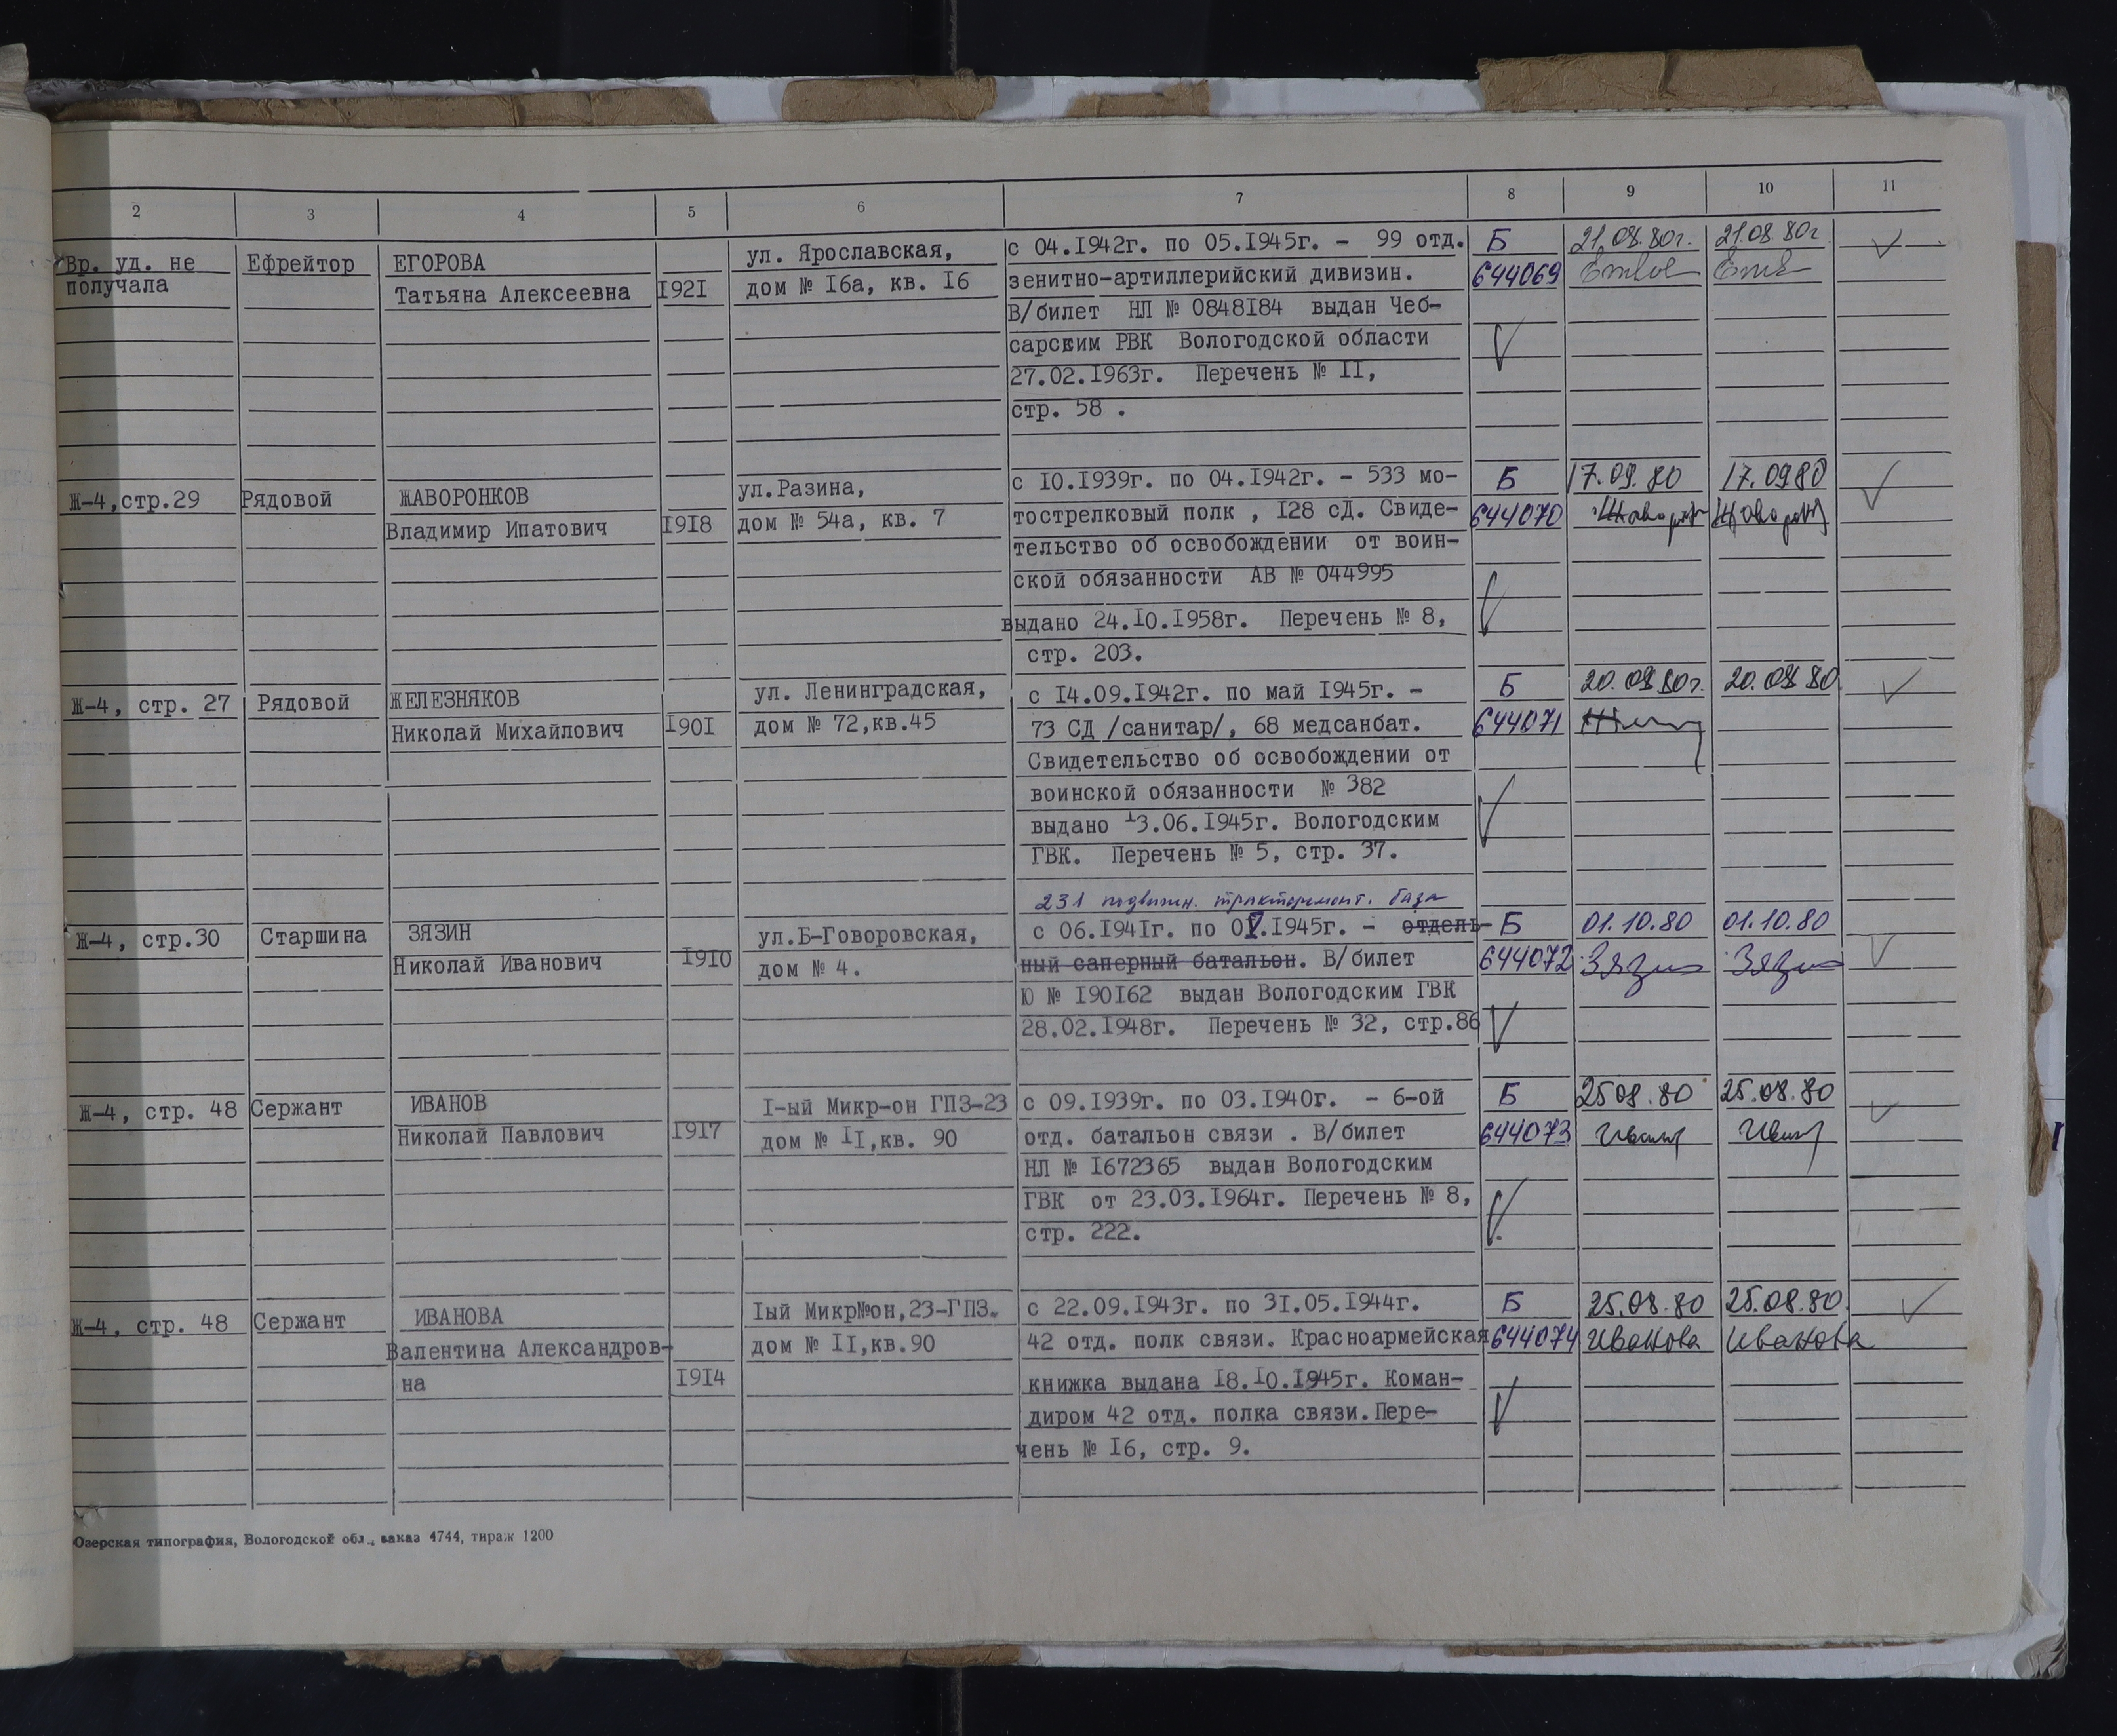 2 3 4 5 6 7 8 9 10 11
Вр. уд. не получала
Ефрейтор
ЕГОРОВА
Татьяна Алексеевна
1921
ул. Ярославская,
дом № 16а, кв. 16
с 04.1942г. по 05.1945г. - 99 отд.
зенитно-артиллерийский дивизин.
В/билет НЛ № 0848184 выдан Чеб-
сарским РВК Вологодской области
27.02.1963г. Перечень № 11,
стр. 58 .
Б
644069
21.08.80г.
21.08.80г
Ж-4,стр.29
Рядовой
ЖАВОРОНКОВ
Владимир Ипатович
1918
ул.Разина,
дом № 54а, кв. 7
с 10.1939г. по 04.1942г. - 533 мо-
тострелковый полк , 128 сД. Свиде-
тельство об освобождении от воин-
ской обязанности АВ № 044995
выдано 24.10.1958г. Перечень № 8,
стр. 203.
Б
644070
17.09.80
17.0980
Ж-4, стр. 27
Рядовой
ЖЕЛЕЗНЯКОВ
Николай Михайлович
1901
ул. Ленинградская,
дом № 72,кв.45
с 14.09.1942г. по май 1945г. -
73 СД /санитар/, 68 медсанбат.
Свидетельство об освобождении от
воинской обязанности № 382
выдано 13.06.1945г. Вологодским
ГВК. Перечень № 5, стр. 37.
Б
644071
20.08 80г.
20.08 80
Ж-4, стр.30
Старшина
ЗЯЗИН
Николай Иванович
1910
ул.Б-Говоровская,
дом № 4.
231 подвижн. тракторемонт. база
с 06.1941г. по 0V.1945г. - отдель-
ный саперный батальон. В/билет
Ю № 190162 выдан Вологодским ГВК
28.02.1948г. Перечень № 32, стр.86
Б
644072
01.10.80
Зязин
01.10.80
Зязин
Ж-4, стр. 48
Сержант
ИВАНОВ
Николай Павлович
1917
1-ый Микр-он ГПЗ-23
дом № 11,кв. 90
с 09.1939г. по 03.1940г. - 6-ой
отд. батальон связи . В/билет
НЛ № 1672365 выдан Вологодским
ГВК от 23.03.1964г. Перечень № 8,
стр. 222.
Б
644073
25 08.80
25.08.80
Ж-4, стр. 48
Сержант
ИВАНОВА
Валентина Александров-
на
1914
1ый Микр№он,23-ГПЗ.
дом № 11,кв.90
с 22.09.1943г. по 31.05.1944г.
42 отд. полк связи. Красноармейская
книжка выдана 18.10.1945г. Коман-
диром 42 отд. полка связи.Пере-
чень № 16, стр. 9.
Б
644074
25.08.80
Иванова
25.08.80.
Иванова
Озерская типография, Вологодской обл., заказ 4744, тираж 1200